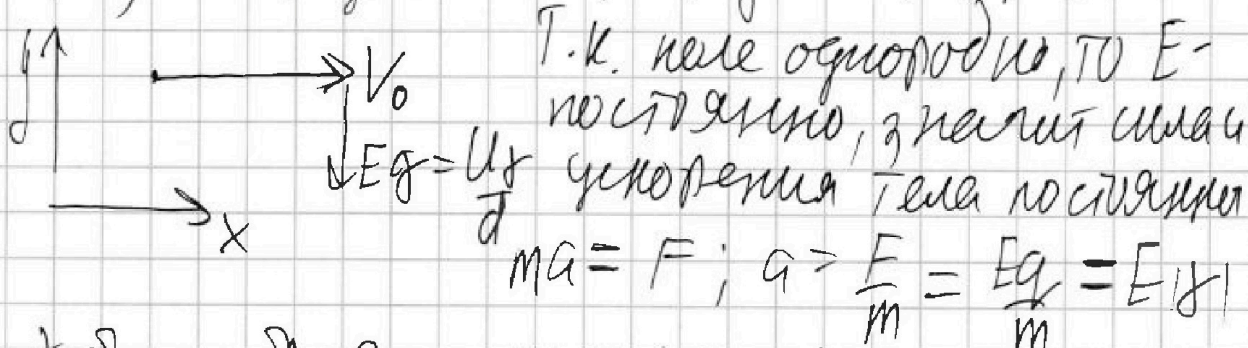 y
V₀
T.к. поле однородно, то E-
постоянно, значит сила и
Eq = Uγ/d
ускорения тела постоянны
x
ma = F; a = F/m = Eq/m = E|γ|